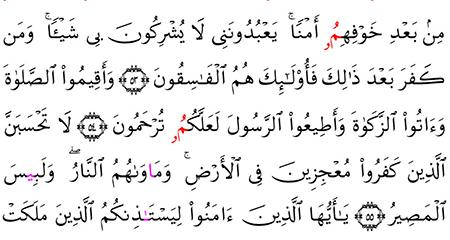 مِنۢ بَعْدِ خَوْفِهِمُۥٓ أَمْنٗاۚ يَعْبُدُونَنِى لَا يُشْرِكُونَ بِى شَيْـٔٗاۚ وَمَن
كَفَرَ بَعْدَ ذَٰلِكَ فَأُوْلَٰٓئِكَ هُمُ ٱلْفَـٰسِقُونَ ۝٥٣ وَأَقِيمُواْ ٱلصَّلَوٰةَ
وَءَاتُواْ ٱلزَّكَوٰةَ وَأَطِيعُواْ ٱلرَّسُولَ لَعَلَّكُمُۥ تُرْحَمُونَ ۝٥٤ لَا تَحْسَبَنَّ
ٱلَّذِينَ كَفَرُواْ مُعْجِزِينَ فِى ٱلْأَرْضِۚ وَمَاوَىٰهُمُ ٱلنَّارُۖ وَلَبِيسَ
ٱلْمَصِيرُ ۝٥٥ يَـٰٓأَيُّهَا ٱلَّذِينَ ءَامَنُواْ لِيَسْتَـٰذِنكُمُ ٱلَّذِينَ مَلَكَتْ